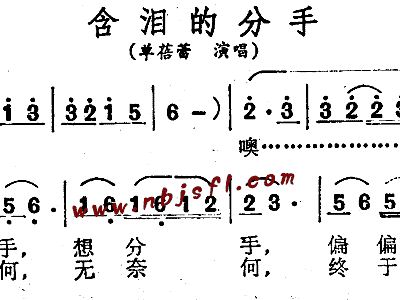 含泪的分手
(单蓓蕾 演唱)
i 3 | 3 2 i 5 | 6 - ) | 2 · 3 | 3 2 2 3
噢
5 6 · | i 6 i 6 i 2 | 2 3 · | 5 6 6 5
www.nbjsfl.com
手, 想 分 手, 偏 偏
何, 无 奈 何, 终 于